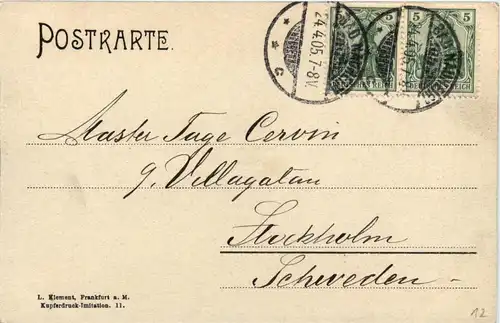 POSTKARTE.
24.4.05.7-8V.
BAD NAUHEIM
5
5
DEUTSCHES REICH
Master Tage Cervin
9. Villagatan
Stockholm
Schweden
L. Klement, Frankfurt a. M.
Kupferdruck-Imitation. 11.
12